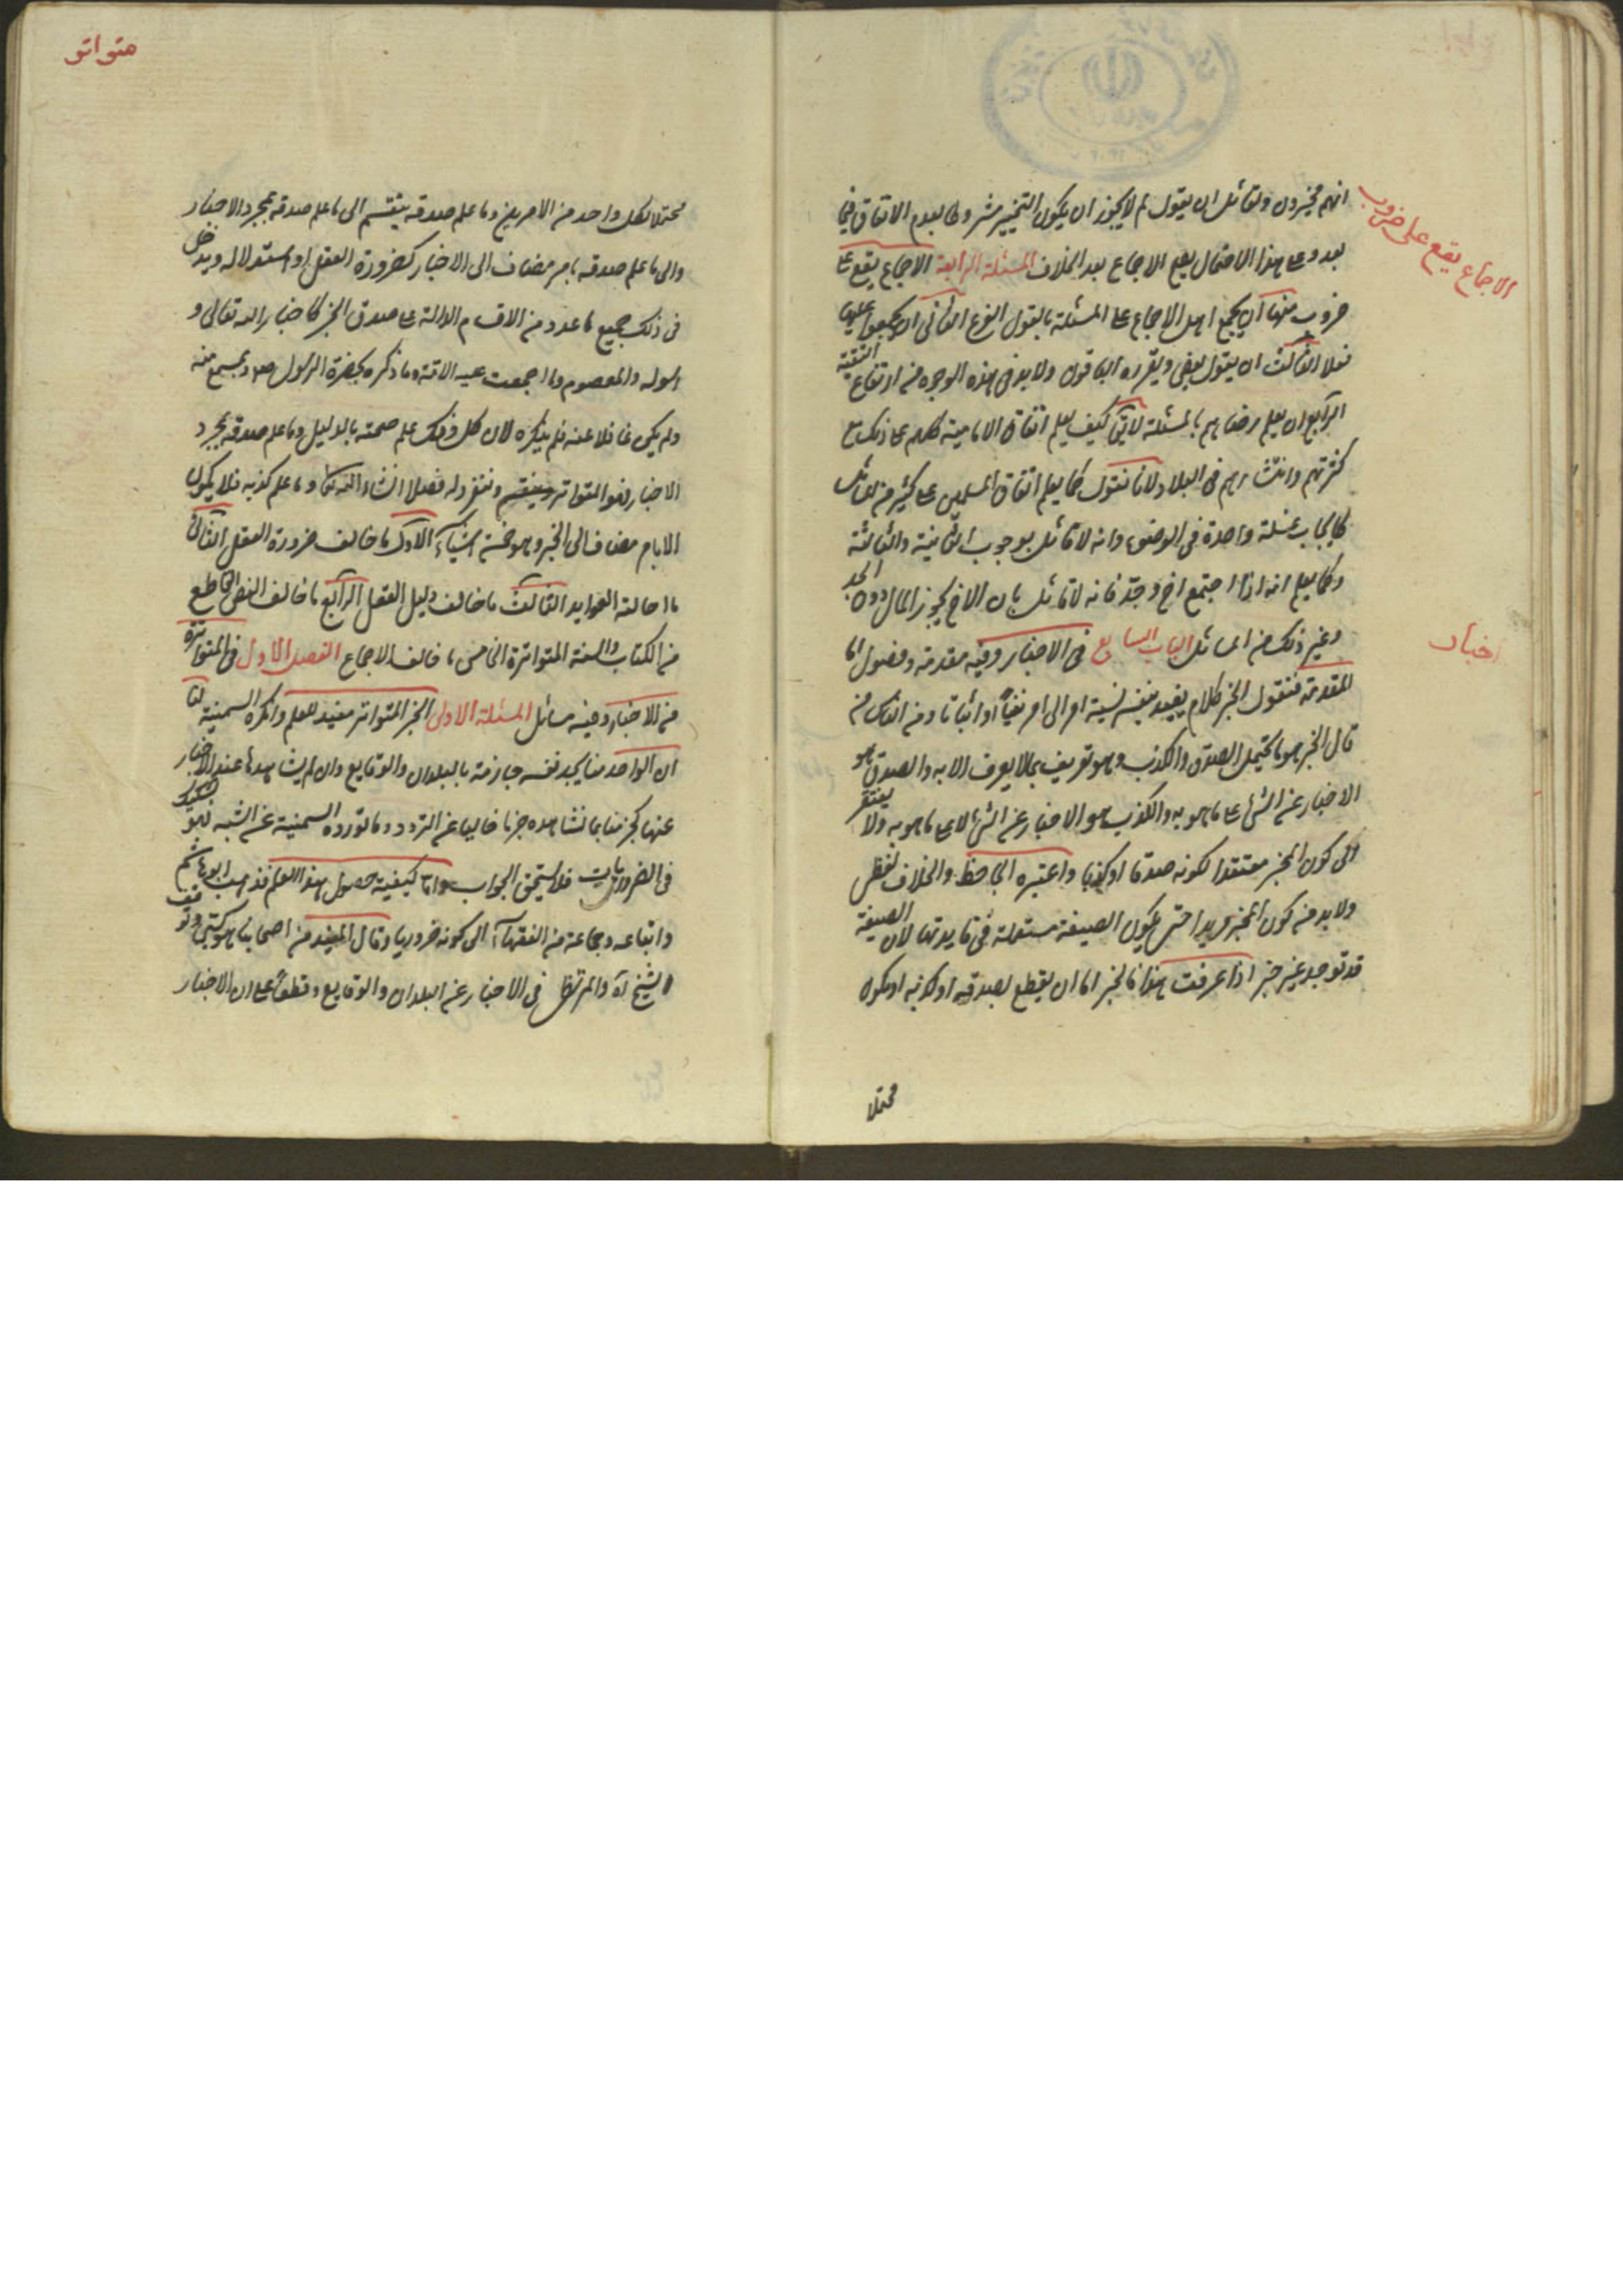 انهم مخيرون ولقائل ان يقول لم لا يجوز ان يكون التخيير مشروطا بعدم الاتفاق فيما
بعد وعلى هذا الاحتمال يقع الاجماع بعد الخلاف المسئلة الرابعة الاجماع يقع على
ضروب منها ان يجمع اهل الاجماع على المسئلة بالقول النوع الثانى ان يجمعوا عليها
فعلا الثالث ان يقول بعض ويقرره الباقون ولا بد فى هذه الوجوه من ارتفاع التقية
الرابع ان يعلم رضاهم بالمسئلة لا يق كيف يعلم اتفاق الامامية كلهم على ذلك مع
كثرتهم وانتشارهم فى البلاد لانا نقول كما يعلم اتفاق المسلمين على كثير من المسائل
كايجاب غسلة واحدة فى الوضوء وانه لا قائل بوجوب الثانية والثالثة
وكما يعلم انه اذا اجتمع اخ وجد فانه لا قائل بان الاخ يحوز المال دون الجد
وغير ذلك من المسائل الباب السابع فى الاخبار وفيه مقدمة وفصول اما
المقدمة فنقول الخبر كلام يفيد بنفسه نسبة امر الى امر نفياً او اثباتا ومن الناس من
قال الخبر هو ما يحتمل الصدق والكذب وهو تعريف بما لا يعرف الا به والصدق هو
الاخبار عن الشئ على ما هو به والكذب هو الاخبار عن الشئ لا على ما هو به ولا يفتقر
الى كون المخبر معتقدا لكونه صدقا او كذبا واعتبره الجاحظ والخلاف لفظى
ولا بد من كون المخبر مريدا حتى يكون الصيغة مستعملة فى فايدتها لان الصيغة
قد توجد غير خبر اذا عرفت هذا فالخبر اما ان يقطع بصدقه او كذبه او يكون
محتملا
الاجماع يقع على ضروب
اخبار
متواتر
محتملا لكل واحد من الامرين وما علم صدقه ينقسم الى ما علم صدقه بمجرد الاخبار
والى ما علم صدقه بامر مضاف الى الاخبار كضرورة العقل او استدلاله ويدخل
فى ذلك جميع ما عدد من الاقسام الدالة على صدق الخبر كاخبار الله تعالى و
رسوله والمعصوم وما اجمعت عليه الامة وما ذكره بحضرة الرسول صلعم وبمسمع منه
ولم يكن غافلا عنه فلم ينكره لان كل ذلك علم صحته بالدليل وما علم صدقه بمجرد
الاخبار فهو المتواتر ونفرد له فصلا انشاء الله تعالى وما علم كذبه فلا يكون
الا بامر مضاف الى الخبر وهو خمسة اشياء الاول ما خالف ضرورة العقل الثانى
ما احالته العوايد الثالث ما خالف دليل العقل الرابع ما خالف النص القاطع
من الكتاب والسنة المتواترة الخامس ما خالف الاجماع الفصل الاول فى المتواترة
من الاخبار وفيه مسائل المسئلة الاولى الخبر المتواتر مفيد للعلم وانكره السمنية لنا
ان الواحد منا يجد نفسه جازمة بالبلدان والوقايع وان لم يشاهدها عند الاخبار
عنها كجزمنا بما نشاهده جزما خاليا عن التردد وما تورده السمنية عن الشبه فهو تشكيك
فى الضروريات فلا يستحق الجواب واما كيفية حصول هذا العلم فذهب ابو هاشم
واتباعه وجماعة من الفقهاء الى كونه ضروريا وقال المفيد من اصحابنا هو كسبى وتوقف
الشيخ ره والمرتضى فى الاخبار عن البلدان والوقايع وقطعا على ان الاخبار